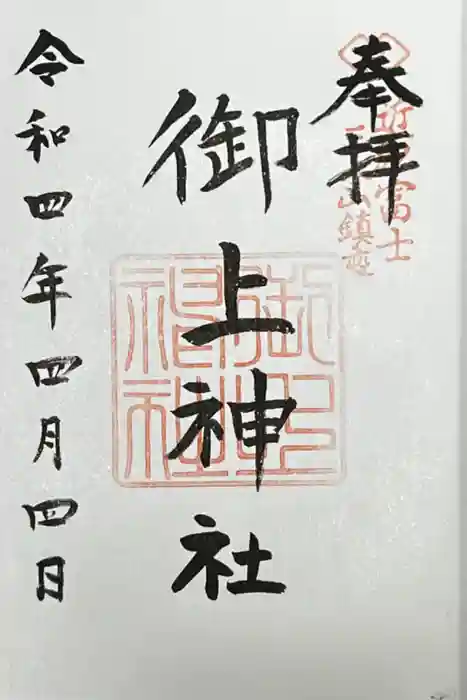 奉拝
近江富士
三上山鎮座
御上神社
令和四年四月四日